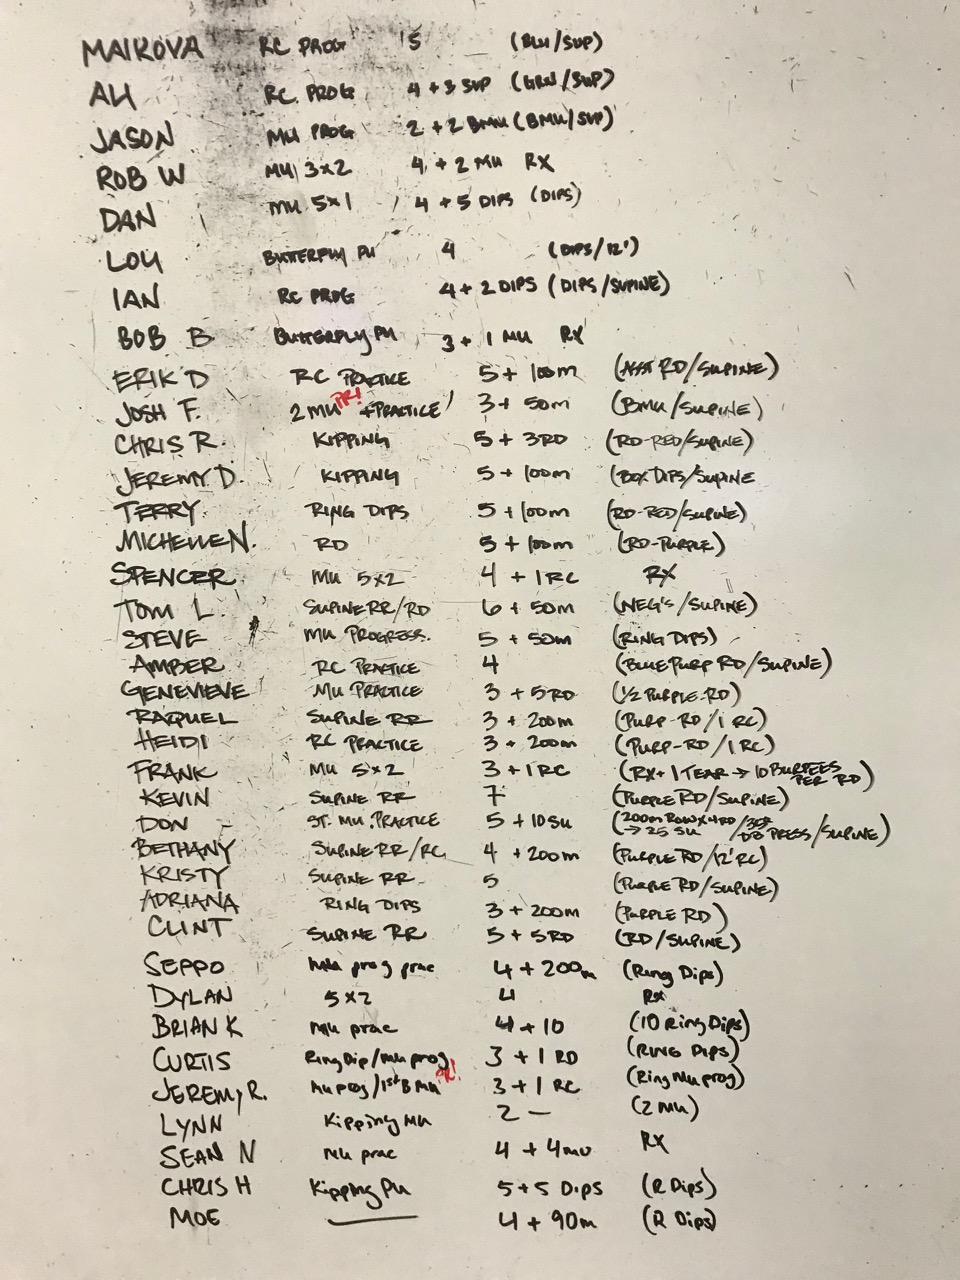 MAIKOVA RC PROG 5 (BLU/SUP)
ALI RC. PROG 4 + 3 SUP (GRN/SUP)
JASON MU PROG 2 + 2 BMU (BMU/SUP)
ROB W MU 3x2 4 + 2 MU RX
DAN MU 5x1 4 + 5 DIPS (DIPS)
LOU BUTTERFLY PU 4 (DIPS/12')
IAN RC PROG 4 + 2 DIPS (DIPS/SUPINE)
BOB B BUTTERFLY PU 3 + 1 MU RX
ERIK D RC PRACTICE 5 + 100m (ASST RD/SUPINE)
JOSH F. 2 MU PR! + PRACTICE 3 + 50m (BMU/SUPINE)
CHRIS R. KIPPING 5 + 3RD (RD-RED/SUPINE)
JEREMY D. KIPPING 5 + 100m (BOX DIPS/SUPINE
TERRY RING DIPS 5 + 100m (RD-RED/SUPINE)
MICHELLE N. RD 5 + 100m (RD-PURPLE)
SPENCER MU 5x2 4 + 1 RC RX
TOM L. SUPINE RR/RD 6 + 50m (NEG'S/SUPINE)
STEVE MU PROGRESS. 5 + 50m (RING DIPS)
AMBER RC PRACTICE 4 (BLUE PURP RD/SUPINE)
GENEVIEVE MU PRACTICE 3 + 5RD (1/2 PURPLE-RD)
RAQUEL SUPINE RR 3 + 200m (PURP-RD/1 RC)
HEIDI RC PRACTICE 3 + 200m (PURP-RD/1 RC)
FRANK MU 5x2 3 + 1 RC (RX + 1 TEAR → 10 BURPEES PER RD)
KEVIN SUPINE RR 7 (PURPLE RD/SUPINE)
DON ST. MU. PRACTICE 5 + 10 SU (200m ROW x 4 RD → 25 SU / DB PRESS/SUPINE)
BETHANY SUPINE RR/RC 4 + 200m (PURPLE RD/12' RC)
KRISTY SUPINE RR 5 (PURPLE RD/SUPINE)
ADRIANA RING DIPS 3 + 200m (PURPLE RD)
CLINT SUPINE RR 5 + 5RD (RD/SUPINE)
SEPPO Mu prog prac 4 + 200m (Ring Dips)
DYLAN 5x2 4 Rx
BRIAN K Mu prac 4 + 10 (10 Ring Dips)
CURTIS Ring Dip/Mu prog 3 + 1 RD (RING DIPS)
JEREMY R. Mu prog/1st B Mu PR! 3 + 1 RC (Ring Mu prog)
LYNN Kipping Mu 2 — (2 Mu)
SEAN N Mu prac 4 + 4mu RX
CHRIS H Kipping Pu 5 + 5 Dips (R Dips)
MOE — 4 + 90m (R Dips)